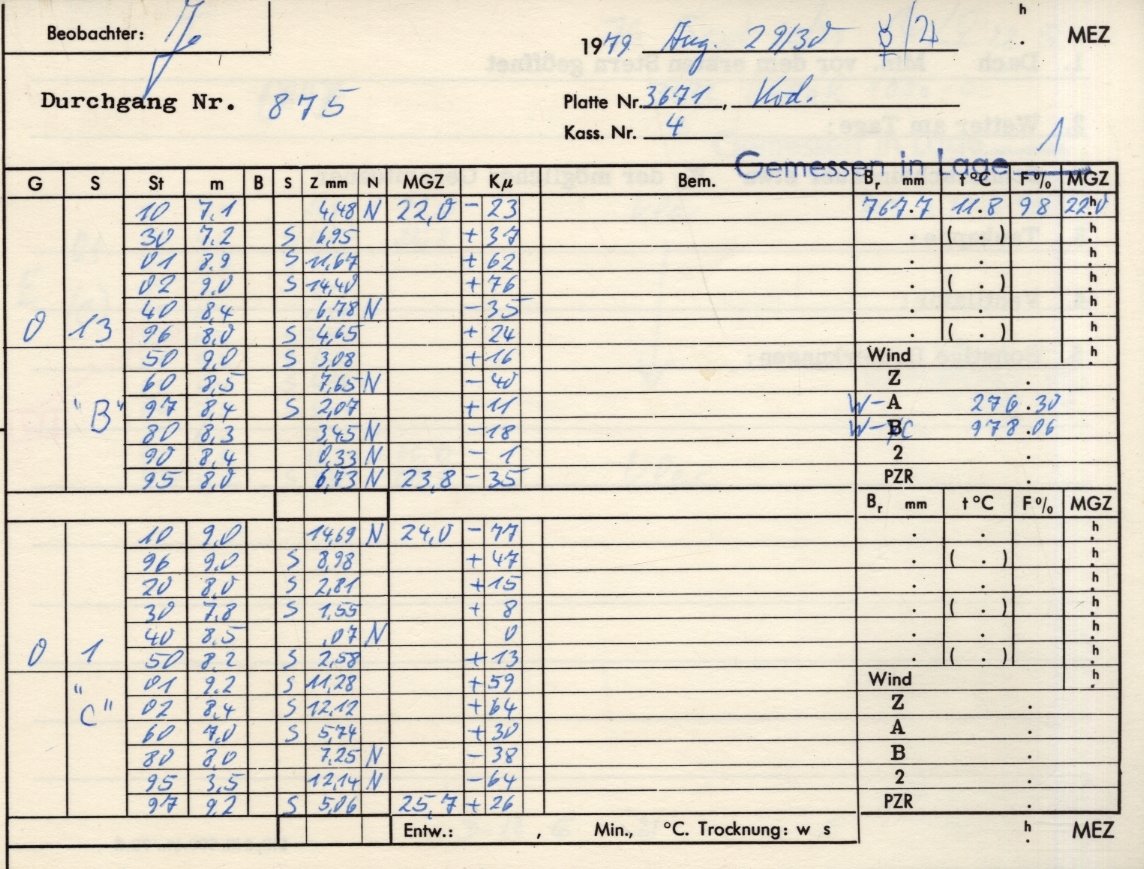 Beobachter:
1979 Aug. 29/30 ☿/♃ h . MEZ
Durchgang Nr. 875
Platte Nr. 3671, Kod.
Kass. Nr. 4
Gemessen in Lage 1
G S St m B S Z mm N MGZ Kμ Bem. Br mm t °C F % MGZ
10 7.1 4,48 N 22,0 - 23 767.7 11.8 98 22.0 h
30 7.2 S 6,95 + 37 . ( . )
01 8.9 S 11,67 + 62 . . h
02 9.0 S 14,40 + 76 . ( . ) h
40 8,4 6,78 N - 35 . . h
0 13 96 8,0 S 4,65 + 24 . ( . ) h
50 9.0 S 3,08 + 16 Wind h
60 8,5 7,65 N - 40 Z .
"B" 97 8,4 S 2,07 + 11 W-A 276.30
80 8,3 3,45 N - 18 W-B/C 978.06
90 8,4 0,33 N - 1 2 .
95 8,0 6,73 N 23,8 - 35 PZR .
Br mm t °C F % MGZ
10 9,0 14,69 N 24,0 - 77 . . h
96 9,0 S 8,98 + 47 . ( . ) h
20 8,0 S 2,81 + 15 . . h
30 7.8 S 1,55 + 8 . ( . ) h
40 8,5 ,07 N 0 . . h
0 1 50 8.2 S 2,58 + 13 . ( . ) h
01 9.2 S 11,28 + 59 Wind h
"C" 02 8,4 S 12,12 + 64 Z .
60 7,0 S 5,74 + 30 A .
80 8,0 7,25 N - 38 B .
95 3,5 12,14 N - 64 2 .
97 9,2 S 5,06 25,7 + 26 PZR .
Entw.: , Min., °C. Trocknung: w s h . MEZ